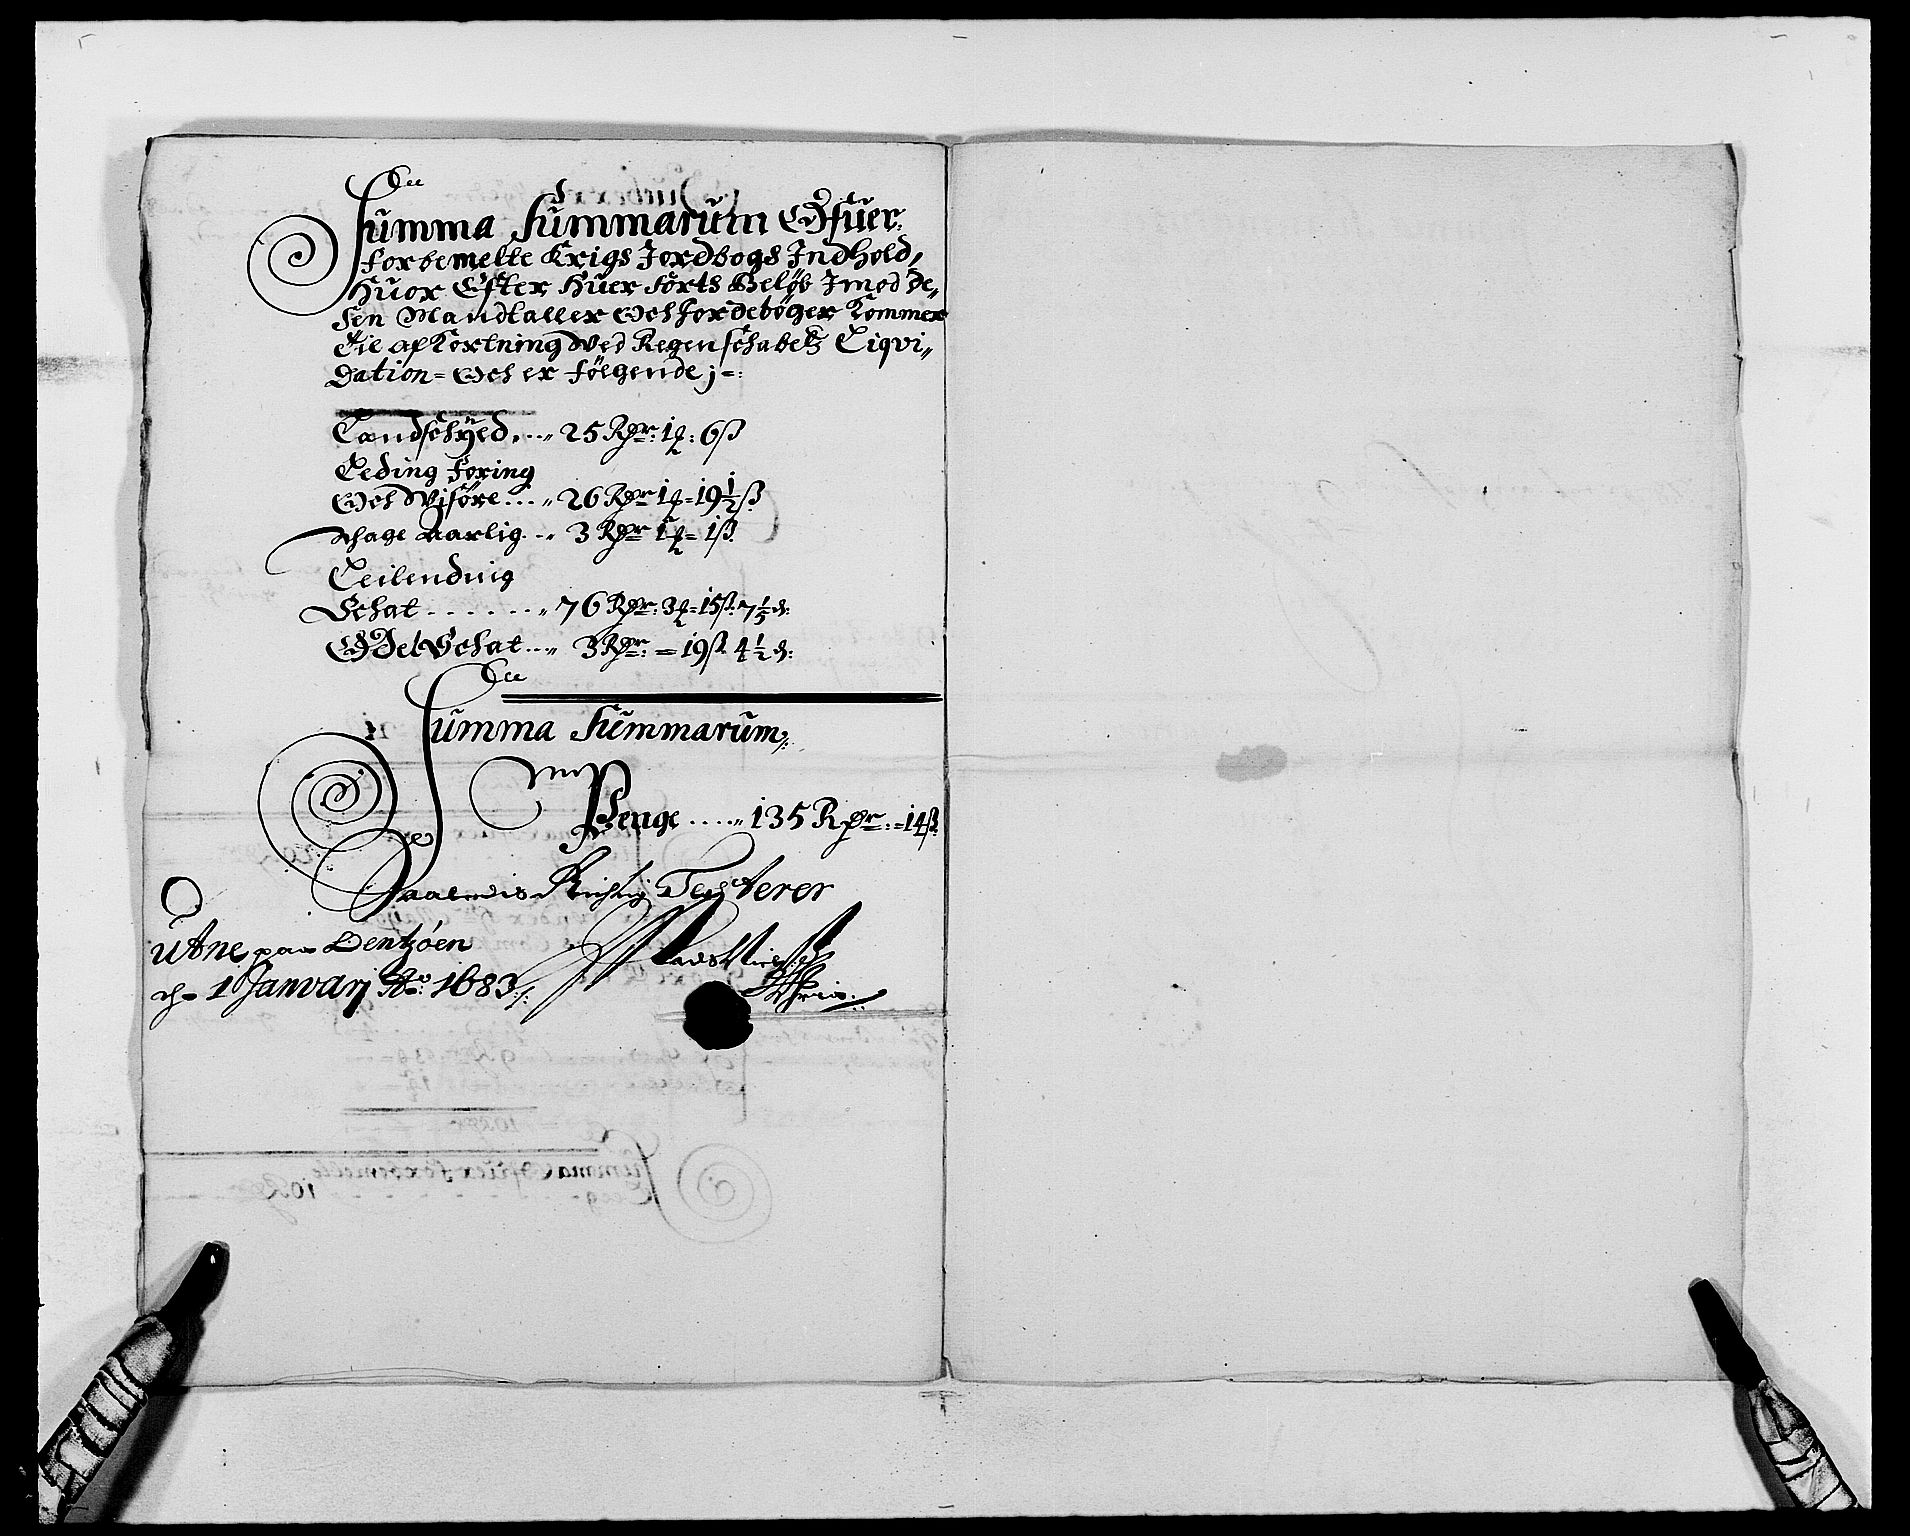 Summa Summarum Ofuer
forbemelte Krigs Jordbogs Indhold,
Huor Efter Huer Sorts Beløb Imod de„
sen Mandtaller Och Jordebøger Kommer
Til afKortning Ved Regenschabetz Liqvi„
dation = Och er følgende ;=:
Landschÿld . . „ 25 Rdr: 1 ₰: 6 ß
Leding foring
Och Visøre . . . „ 26 Rdr 1 ₰ = 19 1/2 ß
Thage Aarlig . . „ 3 Rdr 1 ₰ = 1 ß
Leilendnig
Schat . . . . . . „ 76 Rdr: 3 ₰ = 15 ß: 7 1/5 d:
OdelSchat . . . „ 3 Rdr: = 19 ß 4 1/2 d:
Summa Summarum
Penge . . . . „ 135 Rdr: = 14 ß
Saaledis Rigtig Testerer
Utne paa Dentzóen
1 Januarj Ao: 1683